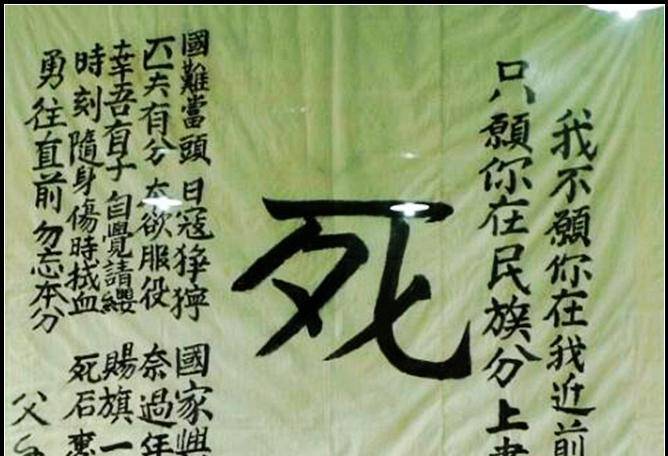 我不願你在我近前
只願你在民族分上
死
國難當頭 日寇猙獰 國家興
匹夫有分 本欲服役 奈過年
幸吾有子 自覺請纓 賜旗一
時刻隨身 傷時拭血 死后
勇往直前 勿忘本分
父